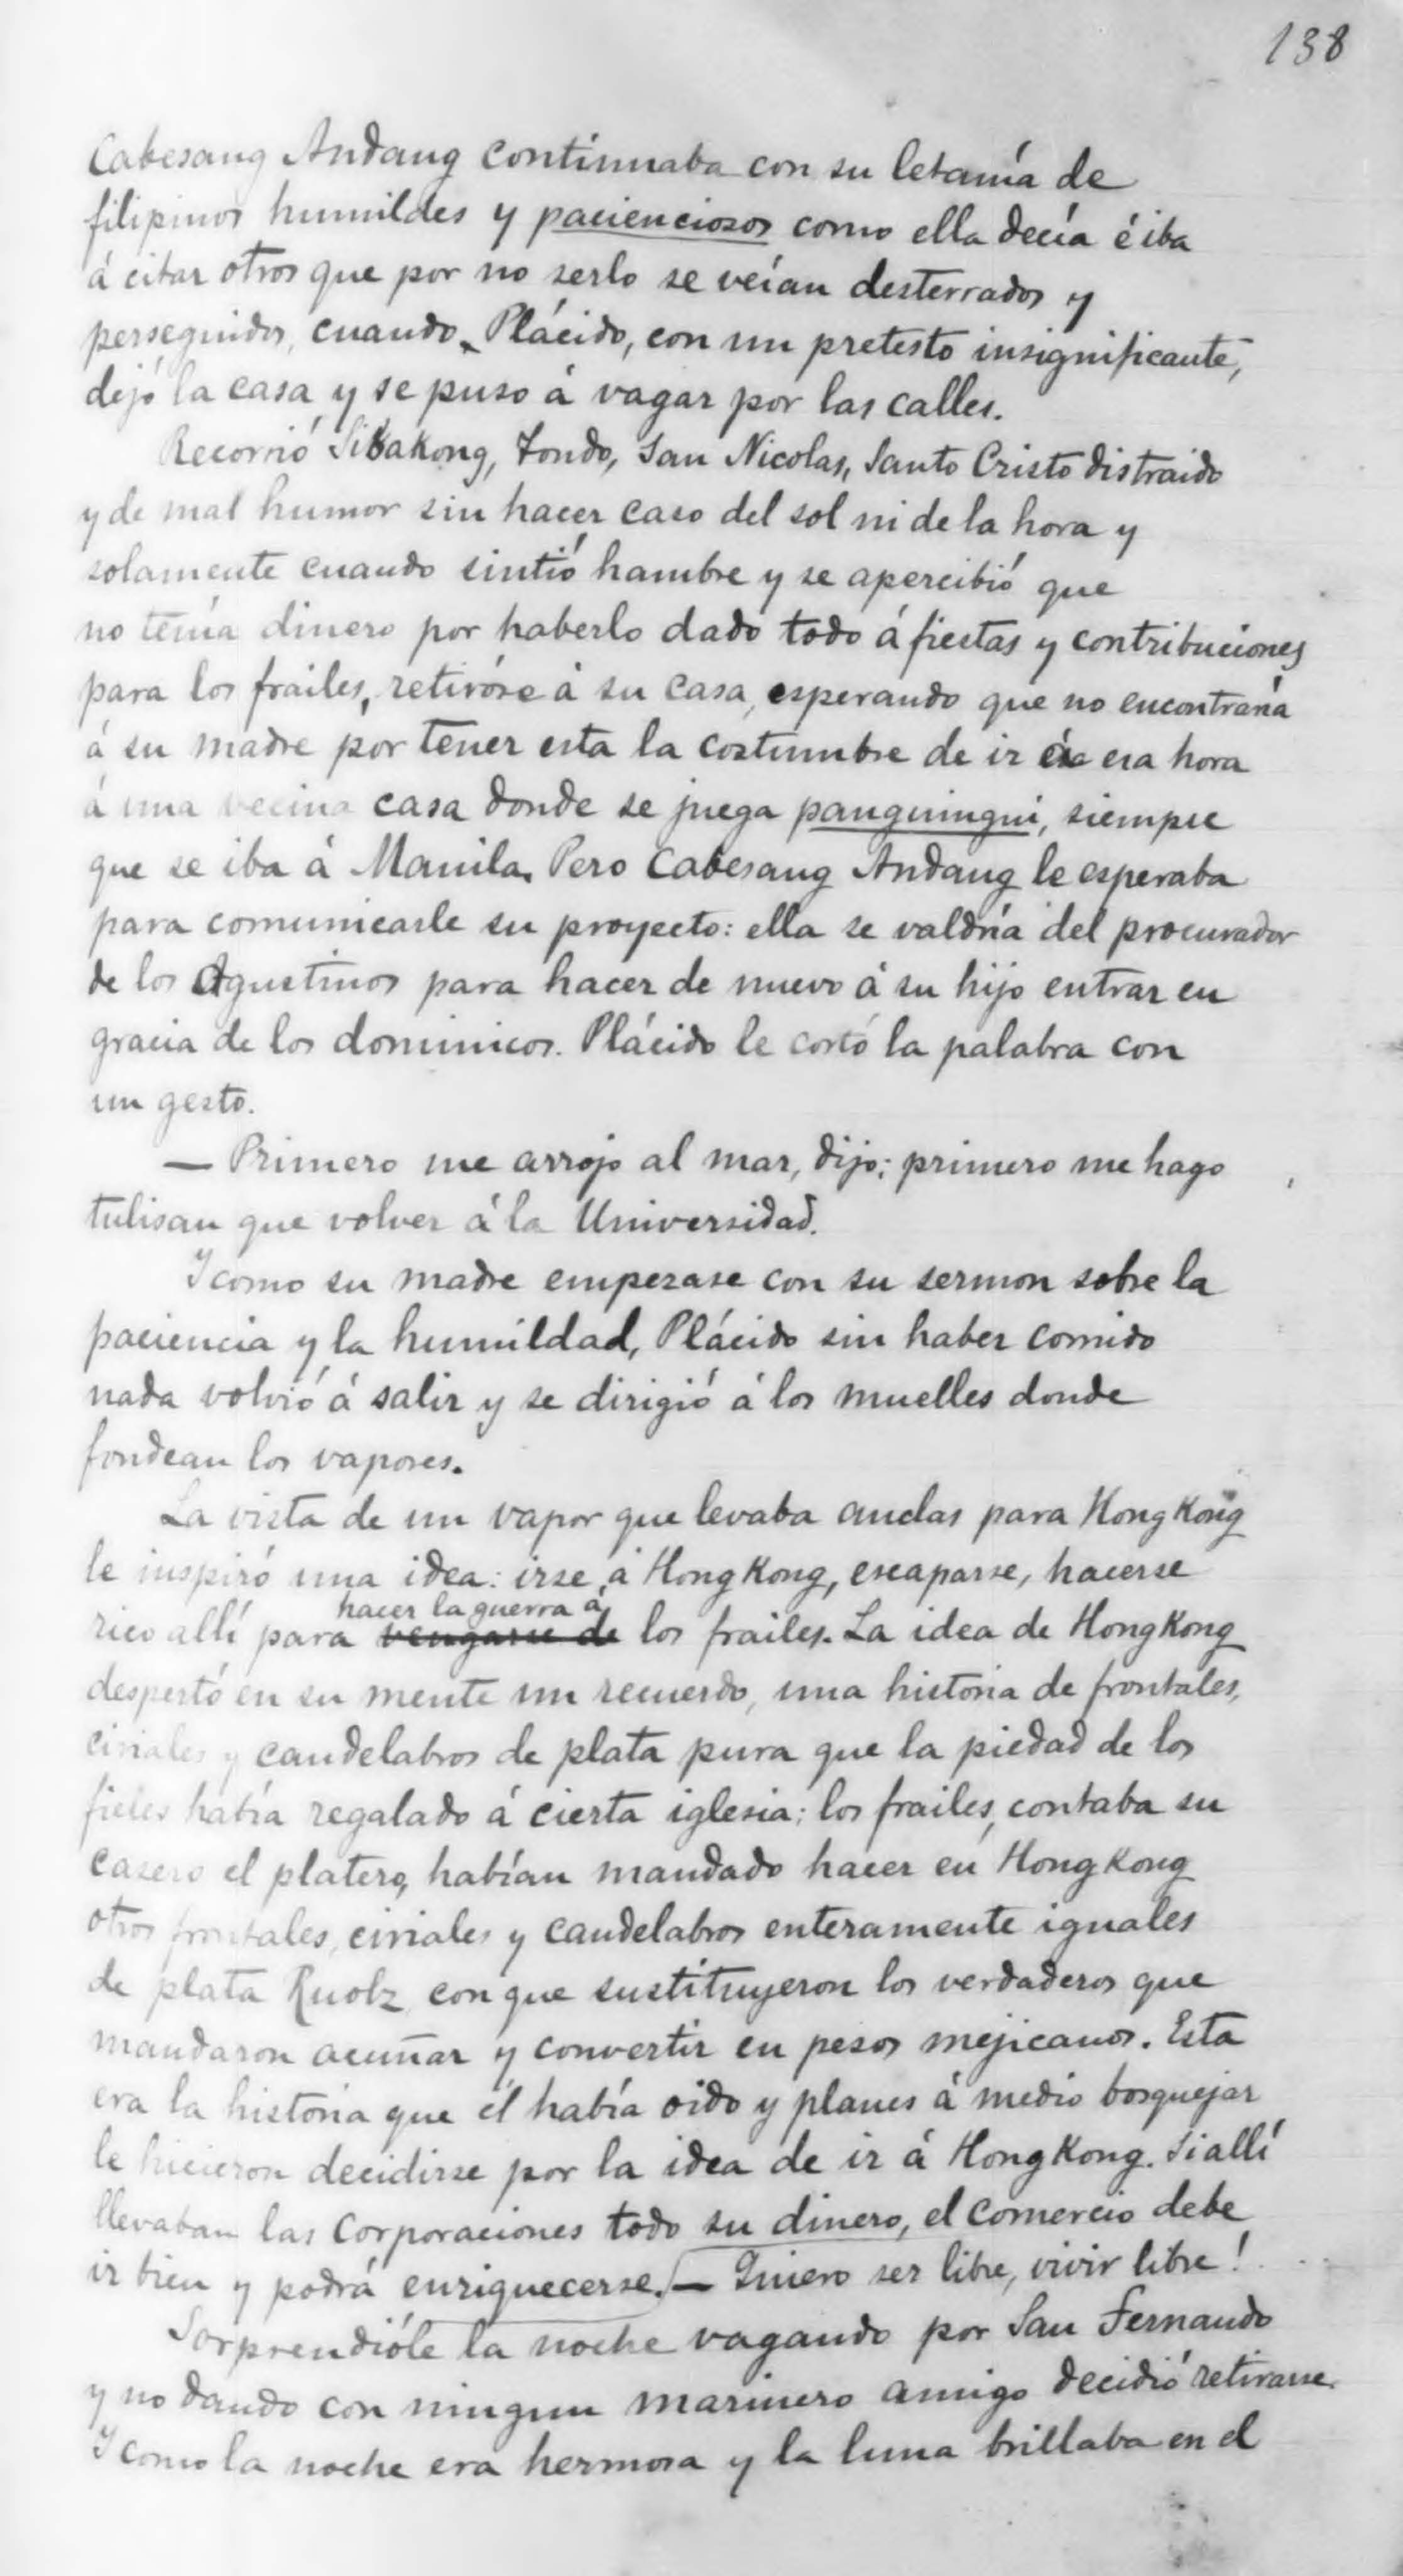 138
Cabesang Andang continuaba con su letanía de
filipinos humildes y pacienciosos como ella decía é iba
á citar otros que por no serlo se veían desterrados y
perseguidos, cuando Plácido, con un pretesto insignificante,
dejó la casa y se puso á vagar por las calles.
Recorrió Sibakong, Tondo, San Nicolas, Santo Cristo distraido
y de mal humor sin hacer caso del sol ni de la hora y
solamente cuando sintió hambre y se apercibió que
no tenía dinero por haberlo dado todo á fiestas y contribuciones
para los frailes, retiróse á su casa, esperando que no encontraría
á su madre por tener esta la costumbre de ir esa hora
á una vecina casa donde se juega panguingui, siempre
que se iba á Manila. Pero Cabesang Andang le esperaba
para comunicarle su proyecto: ella se valdría del procurador
de los Agustinos para hacer de nuevo á su hijo entrar en
gracia de los dominicos. Plácido le cortó la palabra con
un gesto.
— Primero me arrojo al mar, dijo; primero me hago
tulisan que volver á la Universidad.
Y como su madre empezase con su sermon sobre la
paciencia y la humildad, Plácido sin haber comido
nada volvió á salir y se dirigió á los muelles donde
fondean los vapores.
La vista de un vapor que levaba anclas para Hong Kong
le inspiró una idea: irse á Hong Kong, escaparse, hacerse
hacer la guerra á
rico allí para vengarse de los frailes. La idea de Hong Kong
despertó en su mente un recuerdo, una historia de frontales,
ciriales y candelabros de plata pura que la piedad de los
fieles había regalado á cierta iglesia; los frailes, contaba su
casero el platero, habían mandado hacer en Hong Kong
otros frontales, ciriales y candelabros enteramente iguales
de plata Ruolz con que sustituyeron los verdaderos que
mandaron acuñar y convertir en pesos mejicanos. Esta
era la historia que él había oido y planes á medio bosquejar
le hicieron decidirse por la idea de ir á Hong Kong. Si allí
llevaban las Corporaciones todo su dinero, el comercio debe
ir bien y podrá enriquecerse. — Quiero ser libre, vivir libre!
Sorprendióle la noche vagando por San Fernando
y no dando con ningun marinero amigo decidió retirarse.
Y como la noche era hermosa y la luna brillaba en el